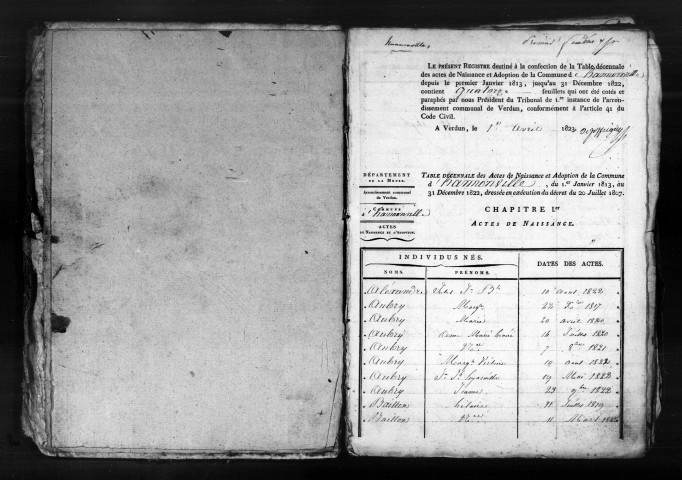 Hannonville
Premier
LE PRÉSENT REGISTRE destiné à la confection de la Table décennale
des actes de Naissance et Adoption de la Commune d e Hannonville
depuis le premier Janvier 1813, jusqu'au 31 Décembre 1822,
contient quatorze feuillets qui ont été cotés et
paraphés par nous Président du Tribunal de 1.re instance de l'arron-
dissement communal de Verdun, conformément à l'article 41 du
Code Civil.
A Verdun, le 1er avril 1823
DÉPARTEMENT
DE LA MEUSE.
Arrondissement communal
de Verdun.
COMMUNE
d'hannonville
ACTES
DE NAISSANCE ET D'ADOPTION.
TABLE DÉCENNALE des Actes de Naissance et Adoption de la Commune
d hannonville, du 1.er Janvier 1813, au
31 Décembre 1822, dressée en exécution du décret du 20 Juillet 1807.
CHAPITRE I.er
ACTES DE NAISSANCE.
INDIVIDUS NÉS.
DATES DES ACTES.
NOMS.
PRÉNOMS.
Aubry Marg.te 22 1817
Aubry Maria 20 avril 1820
Aubry 16 Juillet 1820
Aubry 7 8bre 1821
Aubry Marg.te 19 aout 1822
Aubry 19 Mai 1822
Aubry Jeanne 23 9bre 1822
Baillon 31 Juillet 1819
Baillon 11 Mars